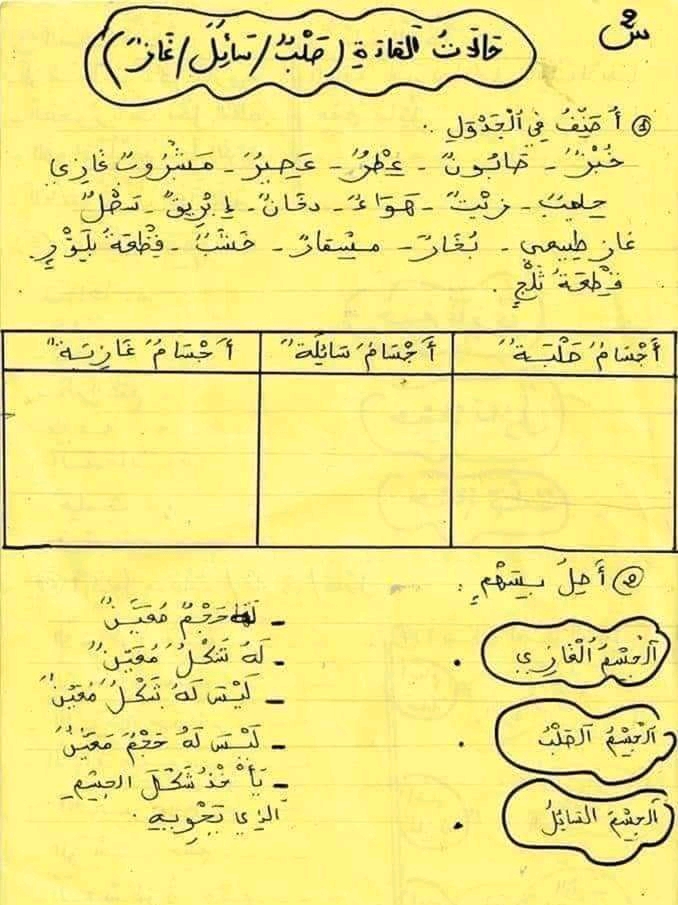 ش2
حَالَاتُ الْمَادَةِ (صَلْبٌ/سَائِلٌ/غَازٌ)
① أُصَنِّفُ فِي الْجَدْوَلِ .
خُبْزٌ - صَابُونٌ - عِطْرٌ - عَصِيرٌ - مَشْرُوبٌ غَازِي
حليبٌ - زيْتٌ - هَوَاءٌ - دخَانٌ - إِبْرِيقٌ - سَطْلٌ
غاز طبيعي - بُخَارٌ - مِسْمَارٌ - خَشَبٌ - قِطْعَةُ بَلَّوْرٍ
قِطْعَةُ ثَلْجٍ .
أَجْسَامٌ صَلْبَةٌ
أَجْسَامٌ سَائِلَةٌ
أَجْسَامٌ غَازِيَةٌ
② أَصِلُ بِسَهْمٍ .
اَلْجِسْمُ الْغَازِي .
اَلْجِسْمُ الصَلْبُ .
اَلْجِسْمُ السَائِلُ .
- لَهُ حَجْمٌ مُعَيَّنٌ
- لَهُ شَكْلٌ مُعَيَّنٌ
- لَيْسَ لَهُ شَكْلٌ مُعَيَّنٌ
- لَيْسَ لَهُ حَجْمٌ مُعَيَّنٌ
- يَأْخُذُ شَكْلَ الجِسْمِ
الَّذِي يَحْوِيهِ .